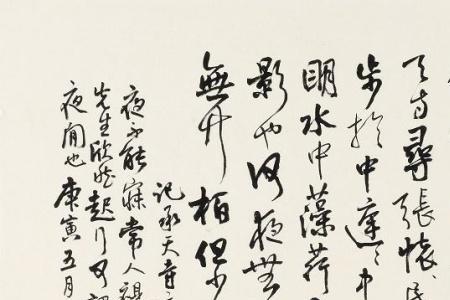 天寺尋張懷民
步於中庭
明水中藻荇
影也何夜無
無竹柏但少
記承天寺
夜不能寐常人
先生欣然起行
夜闲也庚寅五月